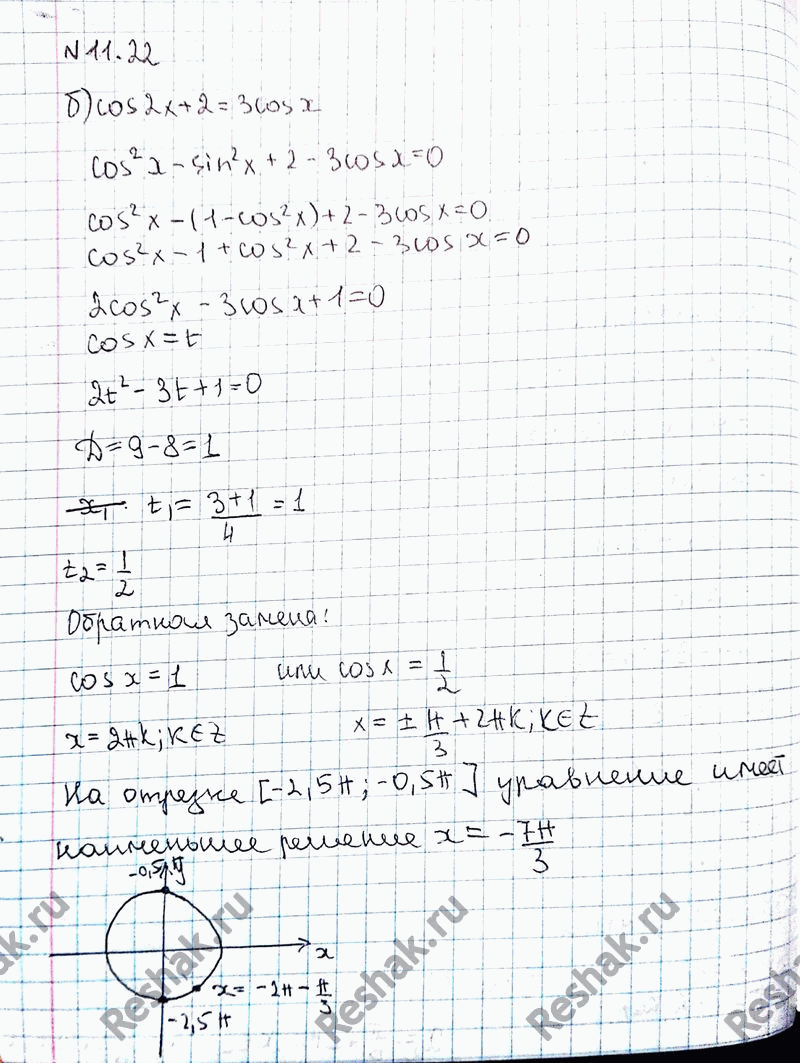 N11.22
б) cos2x+2=3cosx
cos²x - sin²x + 2 - 3cosx=0
cos²x - (1-cos²x)+2-3cosx=0
cos²x - 1 + cos²x + 2 - 3cosx=0
2cos²x - 3cosx+1=0
cosx=t
2t² - 3t+1=0
D=9-8=1
x₁ t₁= (3+1)/4 = 1
t₂= 1/2
Обратная замена:
cosx=1 или cosx = 1/2
x=2πk; k∈Z x= ± π/3 + 2πk; k∈Z
На отрезке [-2,5π; -0,5π] уравнение имеет
наименьшее решение x= -7π/3
-0,5π y
x
x= -2π - π/3
-2,5π
Reshak.ru Reshak.ru Reshak.ru Reshak.ru